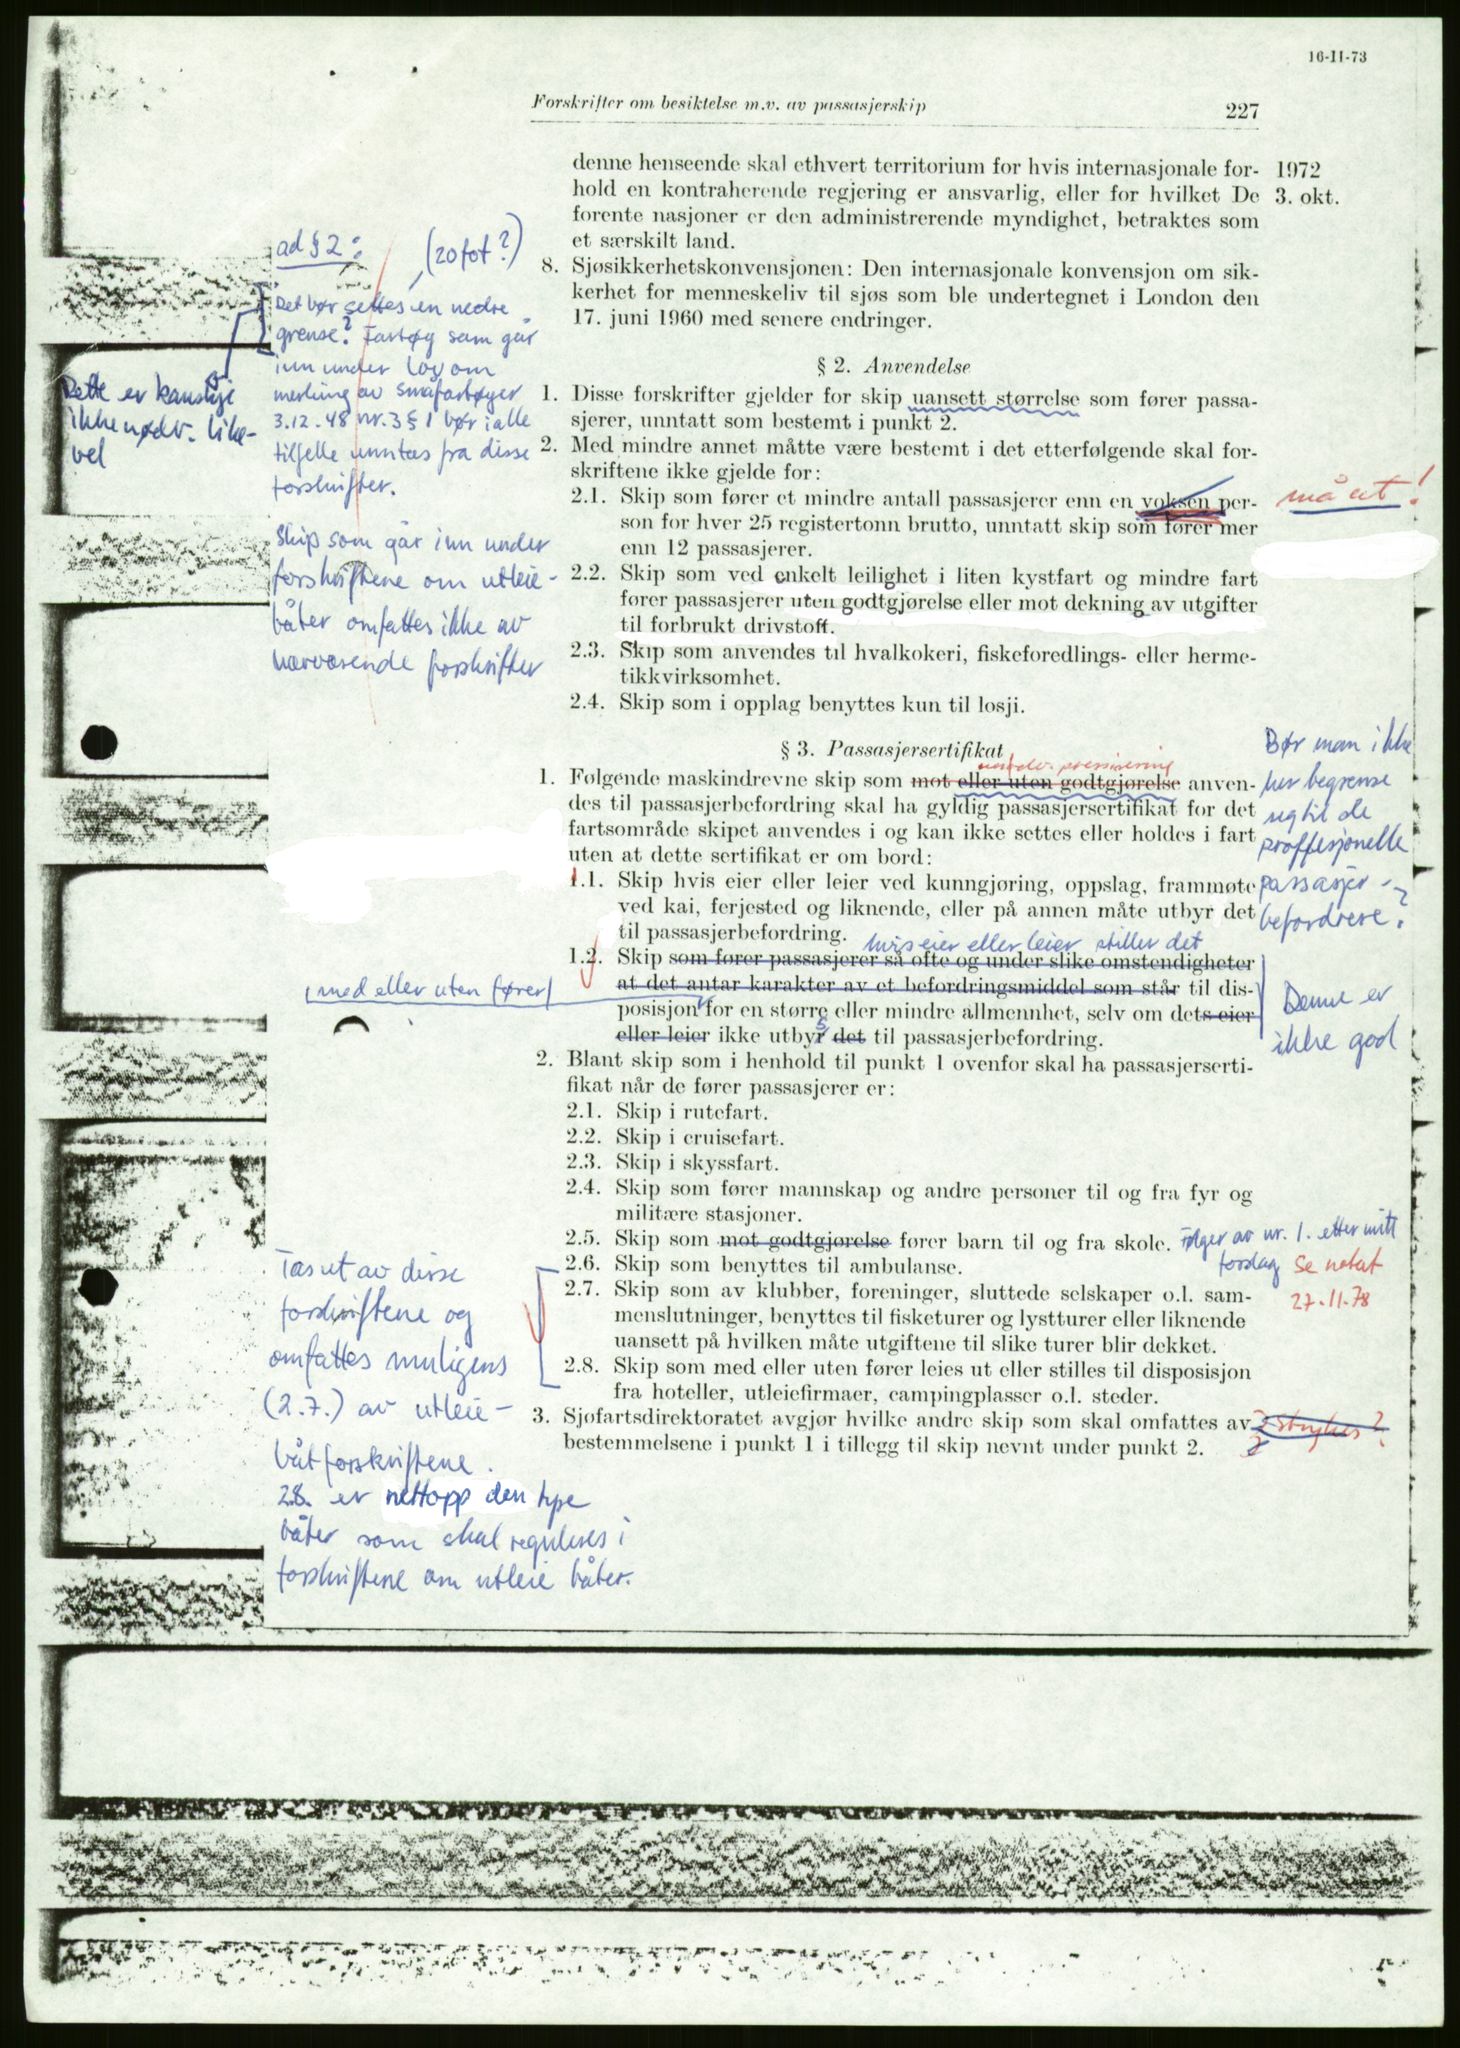 16-II-73
Forskrifter om besiktelse m.v. av passasjerskip
227
denne henseende skal ethvert territorium for hvis internasjonale for-
hold en kontraherende regjering er ansvarlig, eller for hvilket De
forente nasjoner er den administrerende myndighet, betraktes som
et særskilt land.
1972
3. okt.
8. Sjøsikkerhetskonvensjonen: Den internasjonale konvensjon om sik-
kerhet for menneskeliv til sjøs som ble undertegnet i London den
17. juni 1960 med senere endringer.
ad § 2:
(20 fot?)
Det bør settes en nedre
grense? Fartøy som går
inn under lov om
merking av småfartøyer
3.12.48 nr. 3 § 1 bør i alle
tilfelle unntas fra disse
forskrifter.
Dette er kanskje
ikke nødv. like-
vel
Skip som går inn under
forskriftene om utleie-
båter omfattes ikke av
nærværende forskrifter
§ 2. Anvendelse
1. Disse forskrifter gjelder for skip uansett størrelse som fører passa-
sjerer, unntatt som bestemt i punkt 2.
2. Med mindre annet måtte være bestemt i det etterfølgende skal for-
skriftene ikke gjelde for:
2.1. Skip som fører et mindre antall passasjerer enn en voksen per-
son for hver 25 registertonn brutto, unntatt skip som fører mer
enn 12 passasjerer.
må ut!
2.2. Skip som ved enkelt leilighet i liten kystfart og mindre fart
fører passasjerer uten godtgjørelse eller mot dekning av utgifter
til forbrukt drivstoff.
2.3. Skip som anvendes til hvalkokeri, fiskeforedlings- eller herme-
tikkvirksomhet.
2.4. Skip som i opplag benyttes kun til losji.
§ 3. Passasjersertifikat
1. Følgende maskindrevne skip som mot eller uten godtgjørelse anven-
des til passasjerbefordring skal ha gyldig passasjersertifikat for det
fartsområde skipet anvendes i og kan ikke settes eller holdes i fart
uten at dette sertifikat er om bord:
Bør man ikke
her begrense
seg til de
proffesjonelle
passasjer-
befordrere?
1.1. Skip hvis eier eller leier ved kunngjøring, oppslag, frammøte
ved kai, ferjested og liknende, eller på annen måte utbyr det
til passasjerbefordring.
hvis eier eller leier stiller det
1.2. Skip som fører passasjerer så ofte og under slike omstendigheter
at det antar karakter av et befordringsmiddel som står til dis-
posisjon for en større eller mindre allmennhet, selv om dets eier
eller leier ikke utbyr det til passasjerbefordring.
s
(med eller uten fører)
Denne er
ikke god
2. Blant skip som i henhold til punkt 1 ovenfor skal ha passasjerserti-
fikat når de fører passasjerer er:
2.1. Skip i rutefart.
2.2. Skip i cruisefart.
2.3. Skip i skyssfart.
2.4. Skip som fører mannskap og andre personer til og fra fyr og
militære stasjoner.
2.5. Skip som mot godtgjørelse fører barn til og fra skole.
Følger av nr. 1. etter mitt
forslag
se notat
27.11.78
2.6. Skip som benyttes til ambulanse.
2.7. Skip som av klubber, foreninger, sluttede selskaper o.l. sam-
menslutninger, benyttes til fisketurer og lystturer eller liknende
uansett på hvilken måte utgiftene til slike turer blir dekket.
2.8. Skip som med eller uten fører leies ut eller stilles til disposisjon
fra hoteller, utleiefirmaer, campingplasser o.l. steder.
3. Sjøfartsdirektoratet avgjør hvilke andre skip som skal omfattes av
bestemmelsene i punkt 1 i tillegg til skip nevnt under punkt 2.
? strykes ?
?
Tas ut av disse
forskriftene og
omfattes muligens
(2.7.) av utleie-
båtforskriftene.
2.8. er nettopp den type
båter som skal reguleres i
forskriftene om utleie båter.